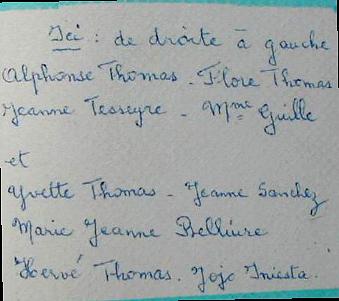 Ici : de droite à gauche
Alphonse Thomas - Flore Thomas
Jeanne Tesseyre - Mme Guille
et
Yvette Thomas - Jeanne Sanchez
Marie Jeanne Belliure
Hervé Thomas. Jojo Iniesta.